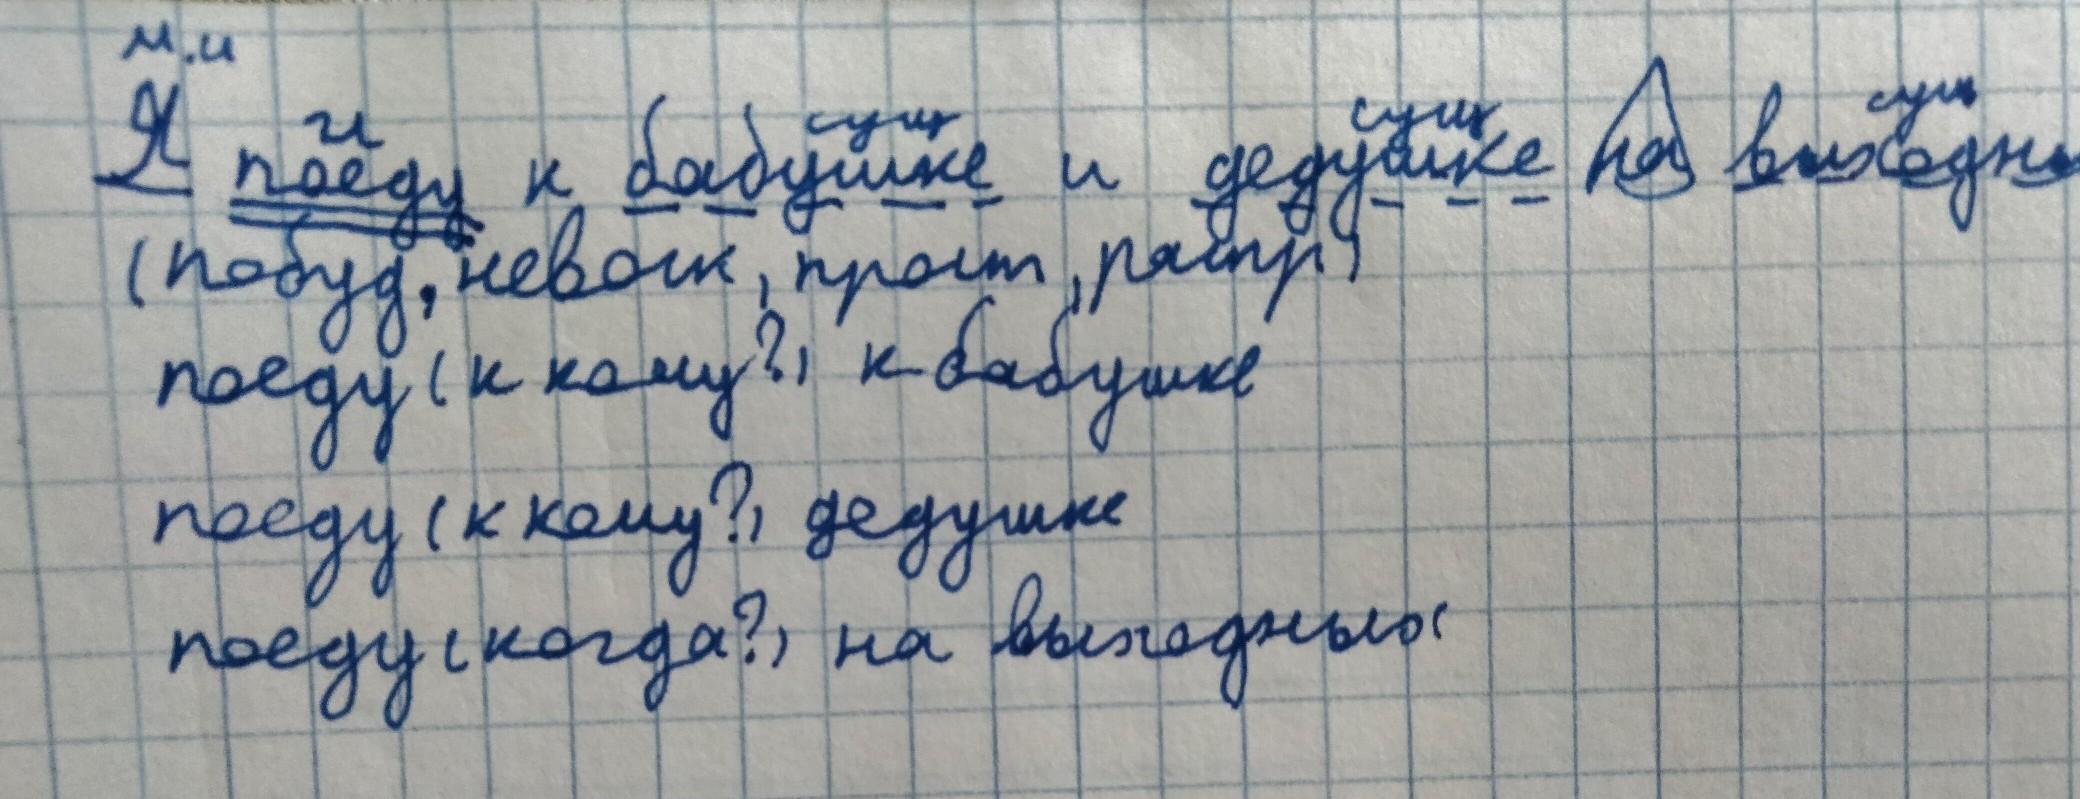 м.и
и сущ сущ сущ
Я поеду к бабушке и дедушке на выходн
(побуд, невоск, прост, распр)
поеду (к кому?) к бабушке
поеду (к кому?) дедушке
поеду (когда?) на выходных